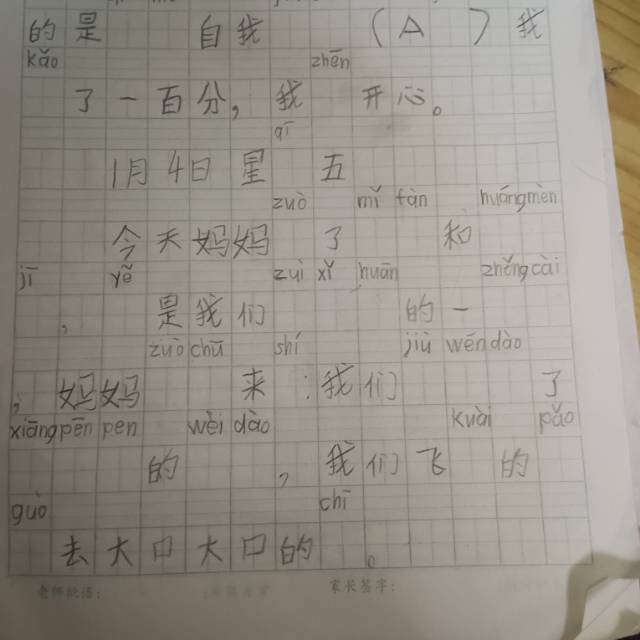 的是 自我 (A) 我
kǎo zhēn
了一百分，我 开心。
qī
1月4日 星 五
zuò mǐ fàn huángmèn
今天妈妈 了 和
jī yě zuì xǐ huān zhěngcài
，是我们 的一
zuò chū shí jiù wén dào
，妈妈 来：我们 了
xiāng pēn pen wèi dào kuài pǎo
的 ，我们飞 的
guò chī
去大口大口的 。
老师批语： 家长签字：